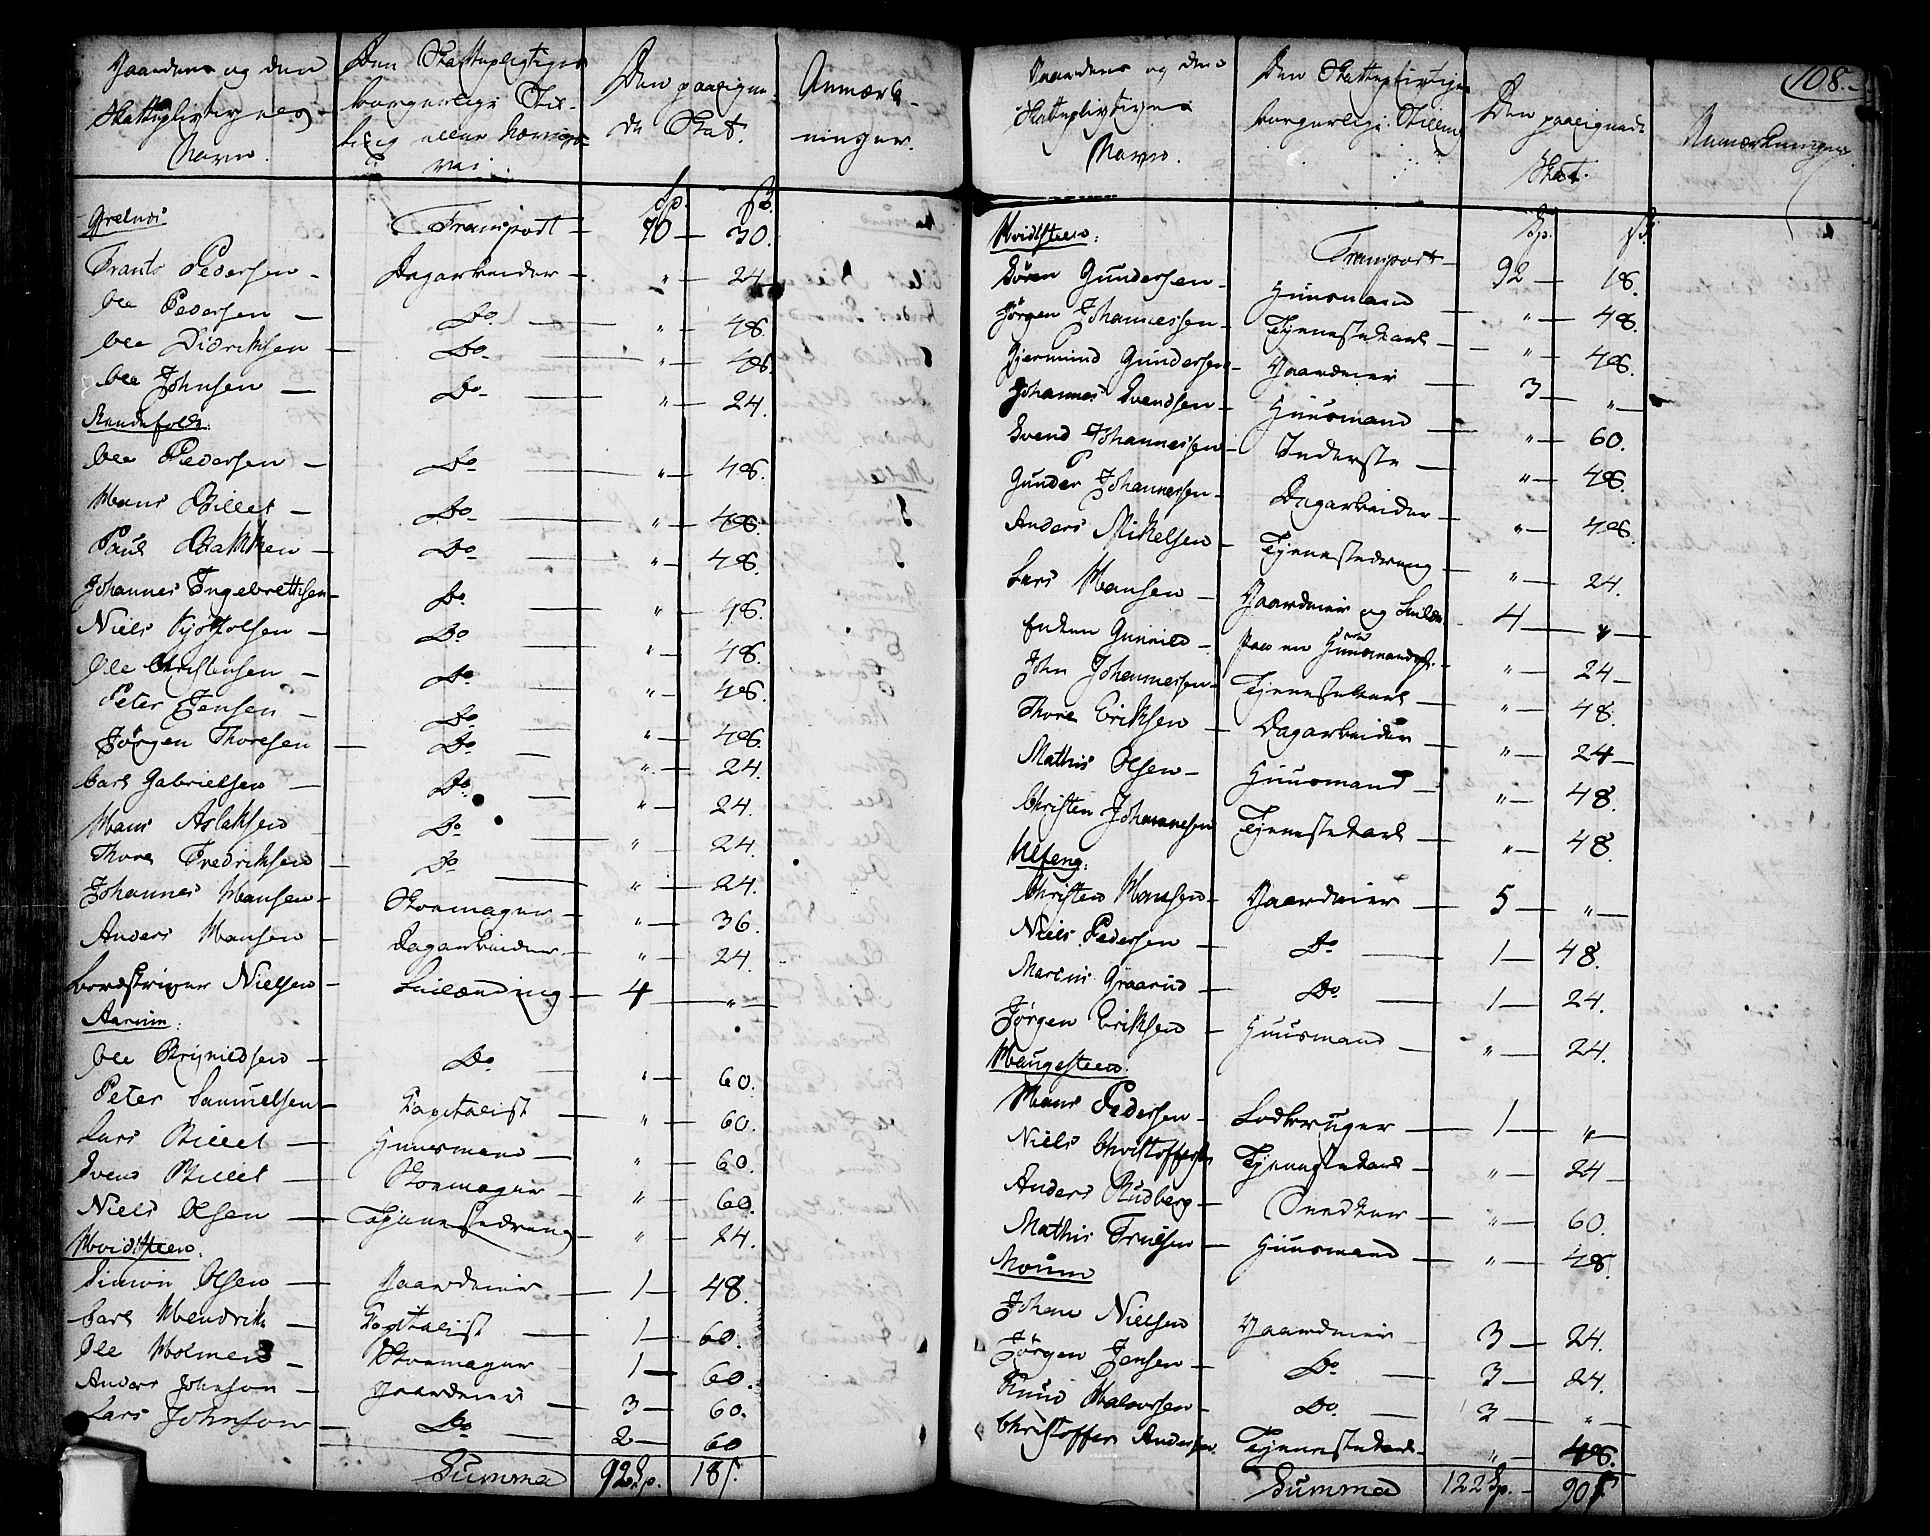 Gaardens og den
Skattepligtiges
Navn.
Den Skattepligtiges
borgerlige Stil-
ling eller Nærings-
vei.
Den paaligne-
de Skat.
Anmærk-
ninger.
Sp. ß.
Grelnæs Transport — 70 — 30.
Frants Pedersen — Dagarbeider — " — 24.
Ole Pedersen — Do — " — 48.
Ole Didriksen — Do — " — 48.
Ole Johnsen — Do — " — 24.
Ole Pedersen — Do — " — 48.
Hans Billet — Do — " — 48.
Paul Bakken — Do — " — 48.
Johannes Ingebrethsen — Do — " — 48.
Niels Kjøstolsen — Do — " — 48.
Ole Christensen — Do — " — 48.
Peter Jensen — Do — " — 48.
Jørgen Thoresen — Do — " — 24.
Carl Gabrielsen — Do — " — 24.
Hans Aslaksen — Do — " — 24.
Thore Fredriksen — Do — " — 24.
Johannes Hansen — Skoemager — " — 36.
Anders Hansen — Dagarbeider — " — 24.
Nielsen — Leilænding — 4 — " —
Aarum:
Ole Brynildsen — Do — " — 60.
Peter Samuelsen — Capitalist — " — 60.
Lars Billet — Huusmand — " — 60.
Svend Billet — Skoemager — " — 60.
Niels Olsen — Tjenestedreng — " — 24.
Hvidsteen:
Simon Olsen — Gaardeier — 1 — 48.
Carl Hendrik — Capitalist — 1 — 60.
Ole Holmen — Skoemager — 1 — 60.
Anders Johnson — Gaardeier — 3 — 60.
Lars Johnson — Do — 2 — 60
Summa 92 Sp. 18 ß.
108.
Gaardens og den
Skattepligtiges
Navn.
Den Skattepligtiges
borgerlige Stilling
Den paalignede
Skat.
Anmærkninger
Sp. ß.
Hvidsteen: Transport — 92 — 18.
Søren Gundersen — Huusmand — " — 48.
Jørgen Johannessen — Tjenestekarl — " — 48.
Gjermund Gundersen — Gaardeier — 3 — " —
Johannes Svendsen — Huusmand — " — 60.
Svend Johannessen — Inderste — " — 48.
Gunder Johannessen — Dagarbeider — " — 48.
Anders Mikelsen — Tjenestedreng — " — 24.
Lars Hansen — Gaardeier og — 4 — " —
Enken Gunild — Paa en Huusmandspl. — " — 24 —
John Johannessen — Tjenestekarl — " — 48.
Thore Eriksen — Dagarbeider — " — 24 —
Mathis Olsen — Huusmand — " — 48.
Christen Johannesen Tjenestekarl — " — 48.
Ulfeng:
Christen Hansen — Gaardeier — 5 — " —
Niels Pedersen — Do — 1 — 48.
Marcus Graarud — Do — 1 — 24.
Jørgen Eriksen — Huusmand — " — 24.
Haugesteen.
Hans Pedersen — Lodbruger — 1 — " —
Niels Christoffersen Tjenestekarl — " — 24 —
Anders Rudberg — Snedker — " — 60.
Mathis Truelsen — Huusmand — " — 48.
Moum
Johan Nielsen Gaardeier — 3 — 24.
Jørgen Jensen — Do — 3 — 24.
Knud Halvorsen — Do — 3 — " —
Christoffer Andersen. Tjenestekarl — " — 48.
Summa 122 Sp. — 90 ß